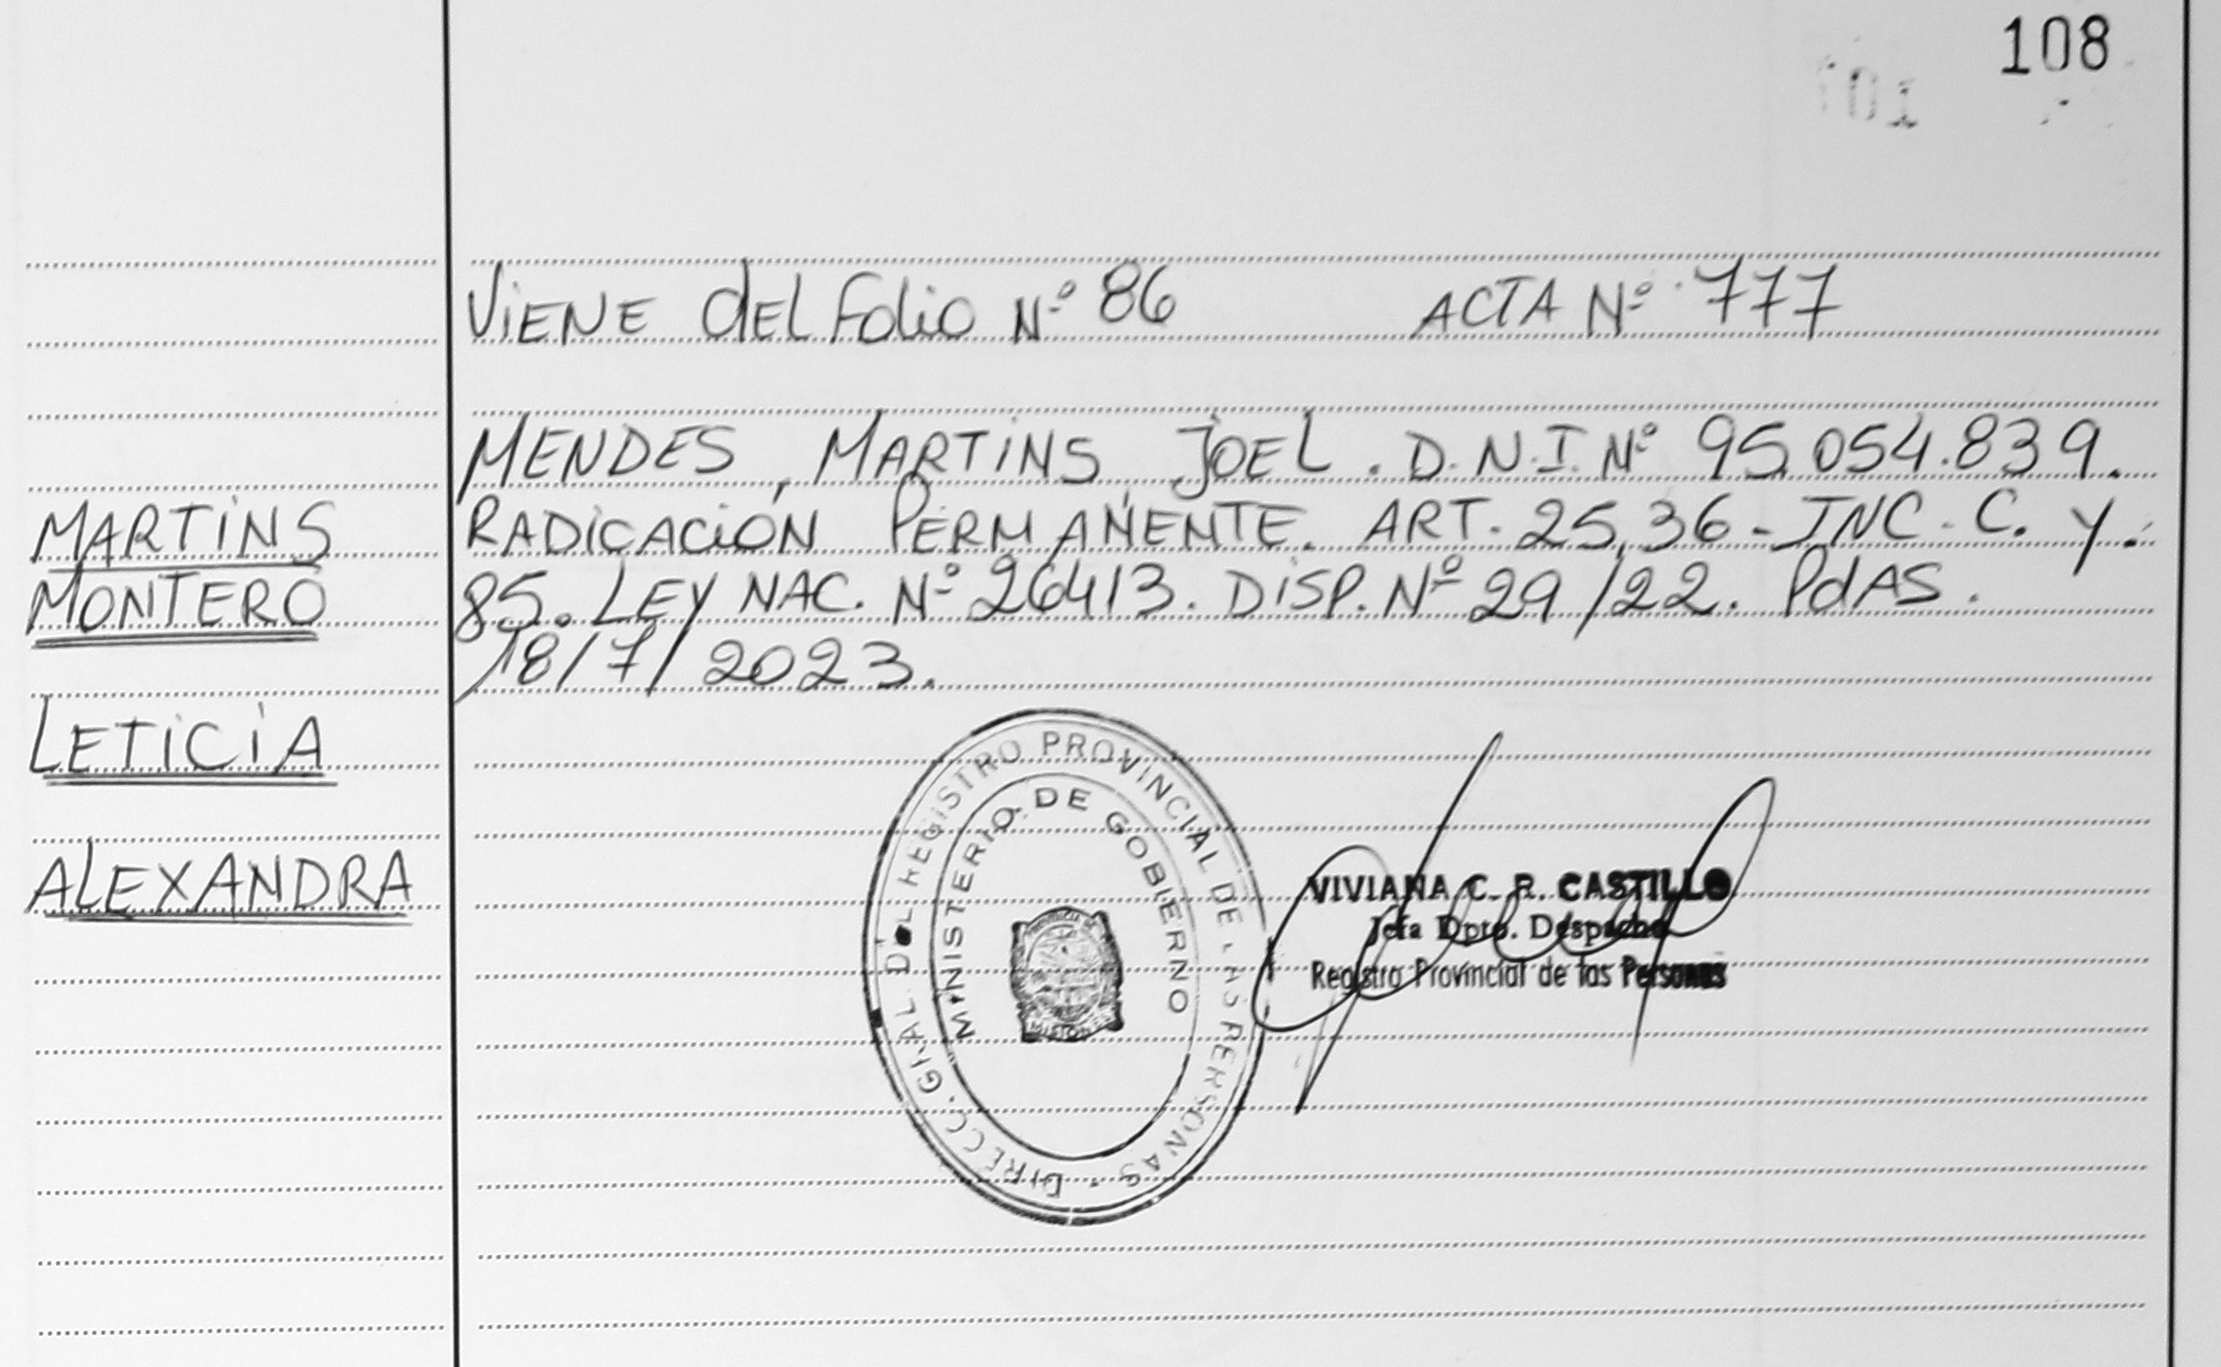 108
VIENE DEL FOLIO Nº 86 ACTA Nº 777
MENDES, MARTINS, JOEL. D.N.I. Nº 95.054.839.
RADICACIÓN PERMANENTE. ART. 25, 36 - INC. C. Y.
85. LEY NAC. Nº 26413. DISP. Nº 29/22. PDAS.
18/7/2023.
MARTINS
MONTERO
LETICIA
ALEXANDRA
DIRECC. GRAL. DEL REGISTRO PROVINCIAL DE LAS PERSONAS
MINISTERIO DE GOBIERNO
MISIONES
VIVIANA C. R. CASTILLO
Jefa Dpto. Despacho
Registro Provincial de las Personas